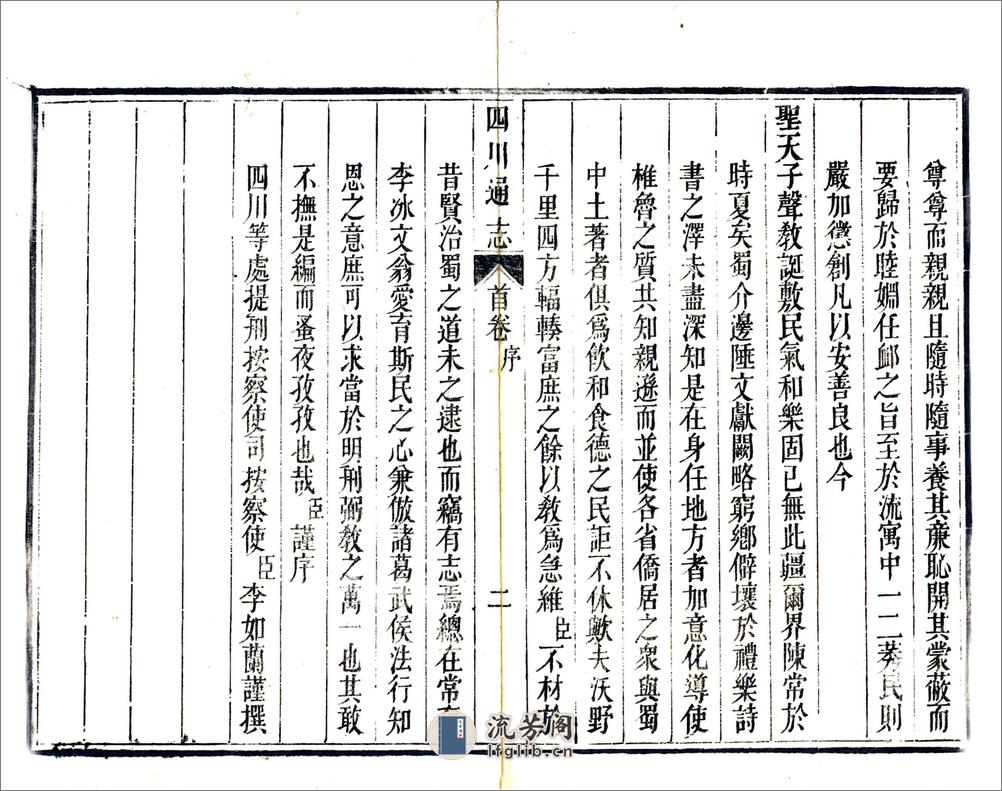 尊尊而親親且隨時隨事養其亷恥開其蒙蔽而
要歸於睦婣任䘏之旨至於流寓中一二莠民則
嚴加懲創凡以安善良也今
聖天子聲教誕敷民氣和樂固已無此疆爾界陳常於
時夏矣蜀介邊陲文獻闕略窮鄉僻壤於禮樂詩
書之澤未盡深知是在身任地方者加意化導使
椎魯之質共知親遜而並使各省僑居之衆與蜀
中土著者俱爲飮和食德之民詎不休歟夫沃野
千里四方輻輳富庶之餘以敎爲急維臣不材於
四川通志 首卷 序 二
昔賢治蜀之道未之逮也而竊有志焉總在常存
李冰文翁愛育斯民之心兼倣諸葛武侯法行知
恩之意庶可以求當於明刑弼敎之萬一也其敢
不撫是編而蚤夜孜孜也哉臣謹序
四川等處提刑按察使司按察使臣李如蘭謹撰
流芳閣
lfglib.cn